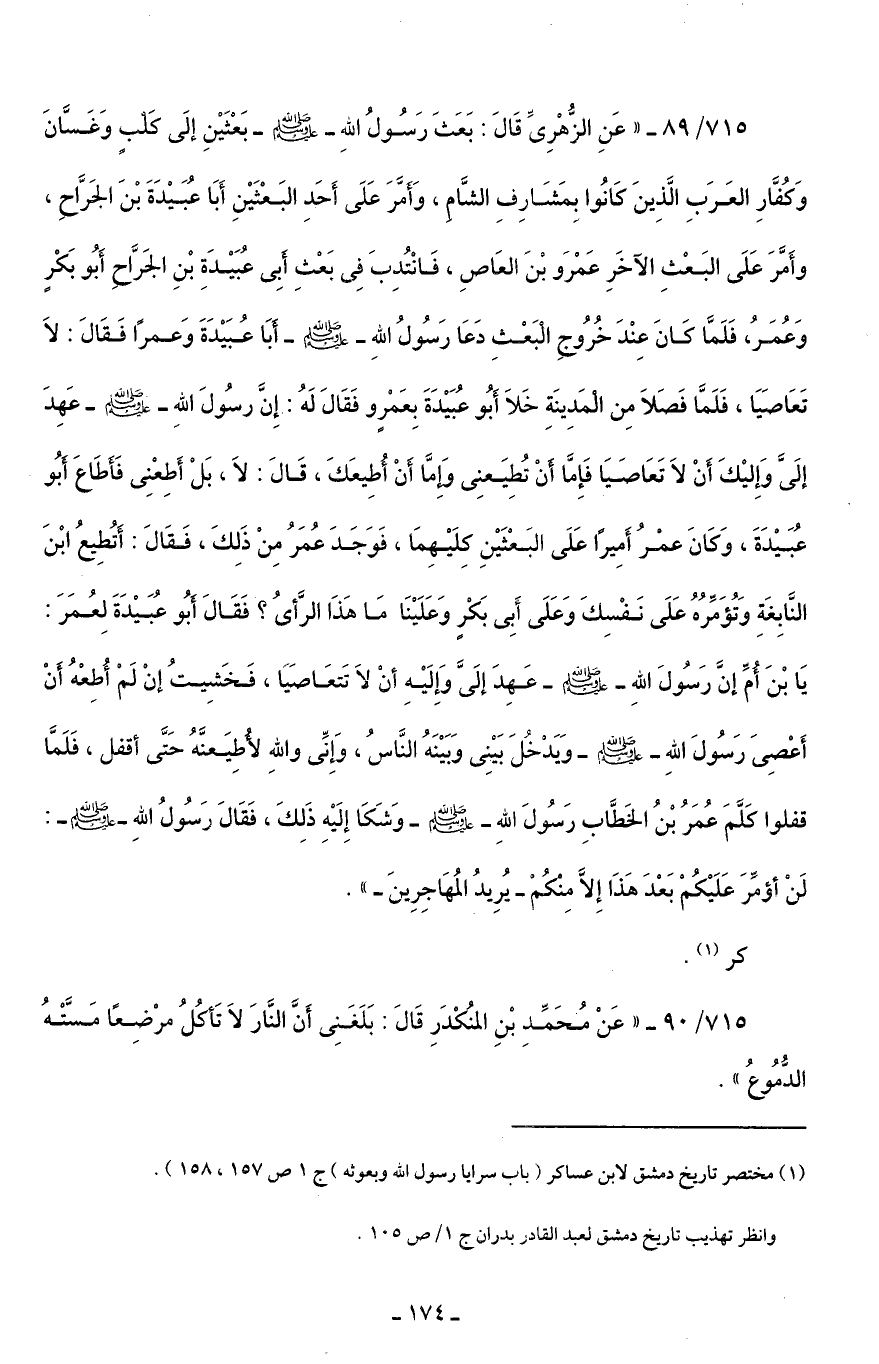 ٨٩/٧١٥ ـ « عَنِ الزُّهْرِىِّ قَالَ : بَعَثَ رَسُولُ اللهِ ـ ﷺ ـ بَعْثَيْنِ إِلَى كَلْبٍ وَغَسَّانَ
وَكُفَّارِ العَرَبِ الَّذِينَ كَانُوا بِمَشَارِفِ الشَّامِ ، وَأَمَّرَ عَلَى أَحَدِ البَعْثَيْنِ أَبَا عُبَيْدَةَ بْنَ الجَرَّاحِ ،
وأَمَّرَ عَلَى البَعْثِ الآخَرِ عَمْرَو بْنَ العَاصِ ، فَانْتُدِبَ فِى بَعْثِ أَبِى عُبَيْدَةِ بْنِ الجَرَّاحِ أَبُو بَكْرٍ
وَعُمَرُ، فَلَمَّا كَانَ عِنْدَ خُرُوجِ الْبَعْثِ دَعَا رَسُولُ اللهِ ـ ﷺ ـ أَبَا عُبَيْدَةَ وَعمرًا فَقَالَ : لاَ
تَعَاصَيَا ، فَلَمَّا فَصَلاَ مِنِ الْمَدِينَةِ خَلاَ أَبُو عُبَيْدَةَ بِعَمْرٍو فَقَالَ لَهُ : إِنَّ رسُولَ اللهِ ـ ﷺ ـ عَهِدَ
إِلَىَّ وَإِلَيْكَ أَنْ لاَ تَعَاصَيَا فَإِمَّا أَنْ تُطِيَعنِى وَإِمَّا أَنْ أُطِيعَكَ ، قَالَ : لاَ ، بَلْ أَطِعْنِى فَأَطَاعَ أَبُو
عُبَيْدَةَ ، وَكَانَ عمْرُ أَمِيرًا عَلَى البَعْثَيْنِ كِلَيْهِمَا ، فَوَجَدَ عُمَرُ مِنْ ذَلِكَ ، فَقَالَ : أَتُطِيعُ ابْنَ
النَّابِغَةِ وَتُؤَمِّرُهُ عَلَى نَفْسِكَ وَعَلَى أَبِى بَكْرٍ وَعَلَيْنَا مَا هَذَا الرَّأىُ ؟ فَقَالَ أَبُو عُبَيْدَةَ لِعُمَرَ :
يَا بْنَ أُمِّ إِنَّ رَسُولَ اللهِ ـ ﷺ ـ عَهِدَ إِلَىَّ وَإِلَيْهِ أنْ لاَ تَتَعَاصَيَا ، فَخَشِيتُ إِنْ لَمْ أُطِعْهُ أَنْ
أَعْصِىَ رَسُولَ اللهِ ـ ﷺ ـ وَيَدْخُلَ بَيْنِى وَبَيْنَهُ النَّاسُ ، وَإِنِّى واللهِ لأُطِيَعنَّهُ حَتَّى أقفل ، فَلَمَّا
قفلوا كَلَّمَ عُمَرُ بْنُ الخَطَّابِ رَسُولَ اللهِ ـ ﷺ ـ وَشَكَا إِلَيْهِ ذَلِكَ ، فَقَالَ رَسُولُ اللهِ ـ ﷺ ـ :
لَنْ أؤمِّرَ عَلَيْكُمْ بَعْدَ هَذَا إِلاَّ مِنْكُمْ ـ يُرِيدُ الْمُهَاجِرِينَ ـ » .
كر (١) .
٩٠/٧١٥ ـ « عَنْ مُحَمَّدِ بْنِ الْمنْكَدَرِ قَالَ : بَلَغَنِى أَنَّ النَّارَ لاَ تَأكُلُ مرْضِعًا مَسَّتْهُ
الدُّمُوعُ » .
(١) مختصر تاريخ دمشق لابن عساكر ( باب سرايا رسول الله وبعوثه ) ج ١ ص ١٥٧ ، ١٥٨ ) .
وانظر تهذيب تاريخ دمشق لعبد القادر بدران ج ١/ ص ١٠٥ .
ـ ١٧٤ ـ